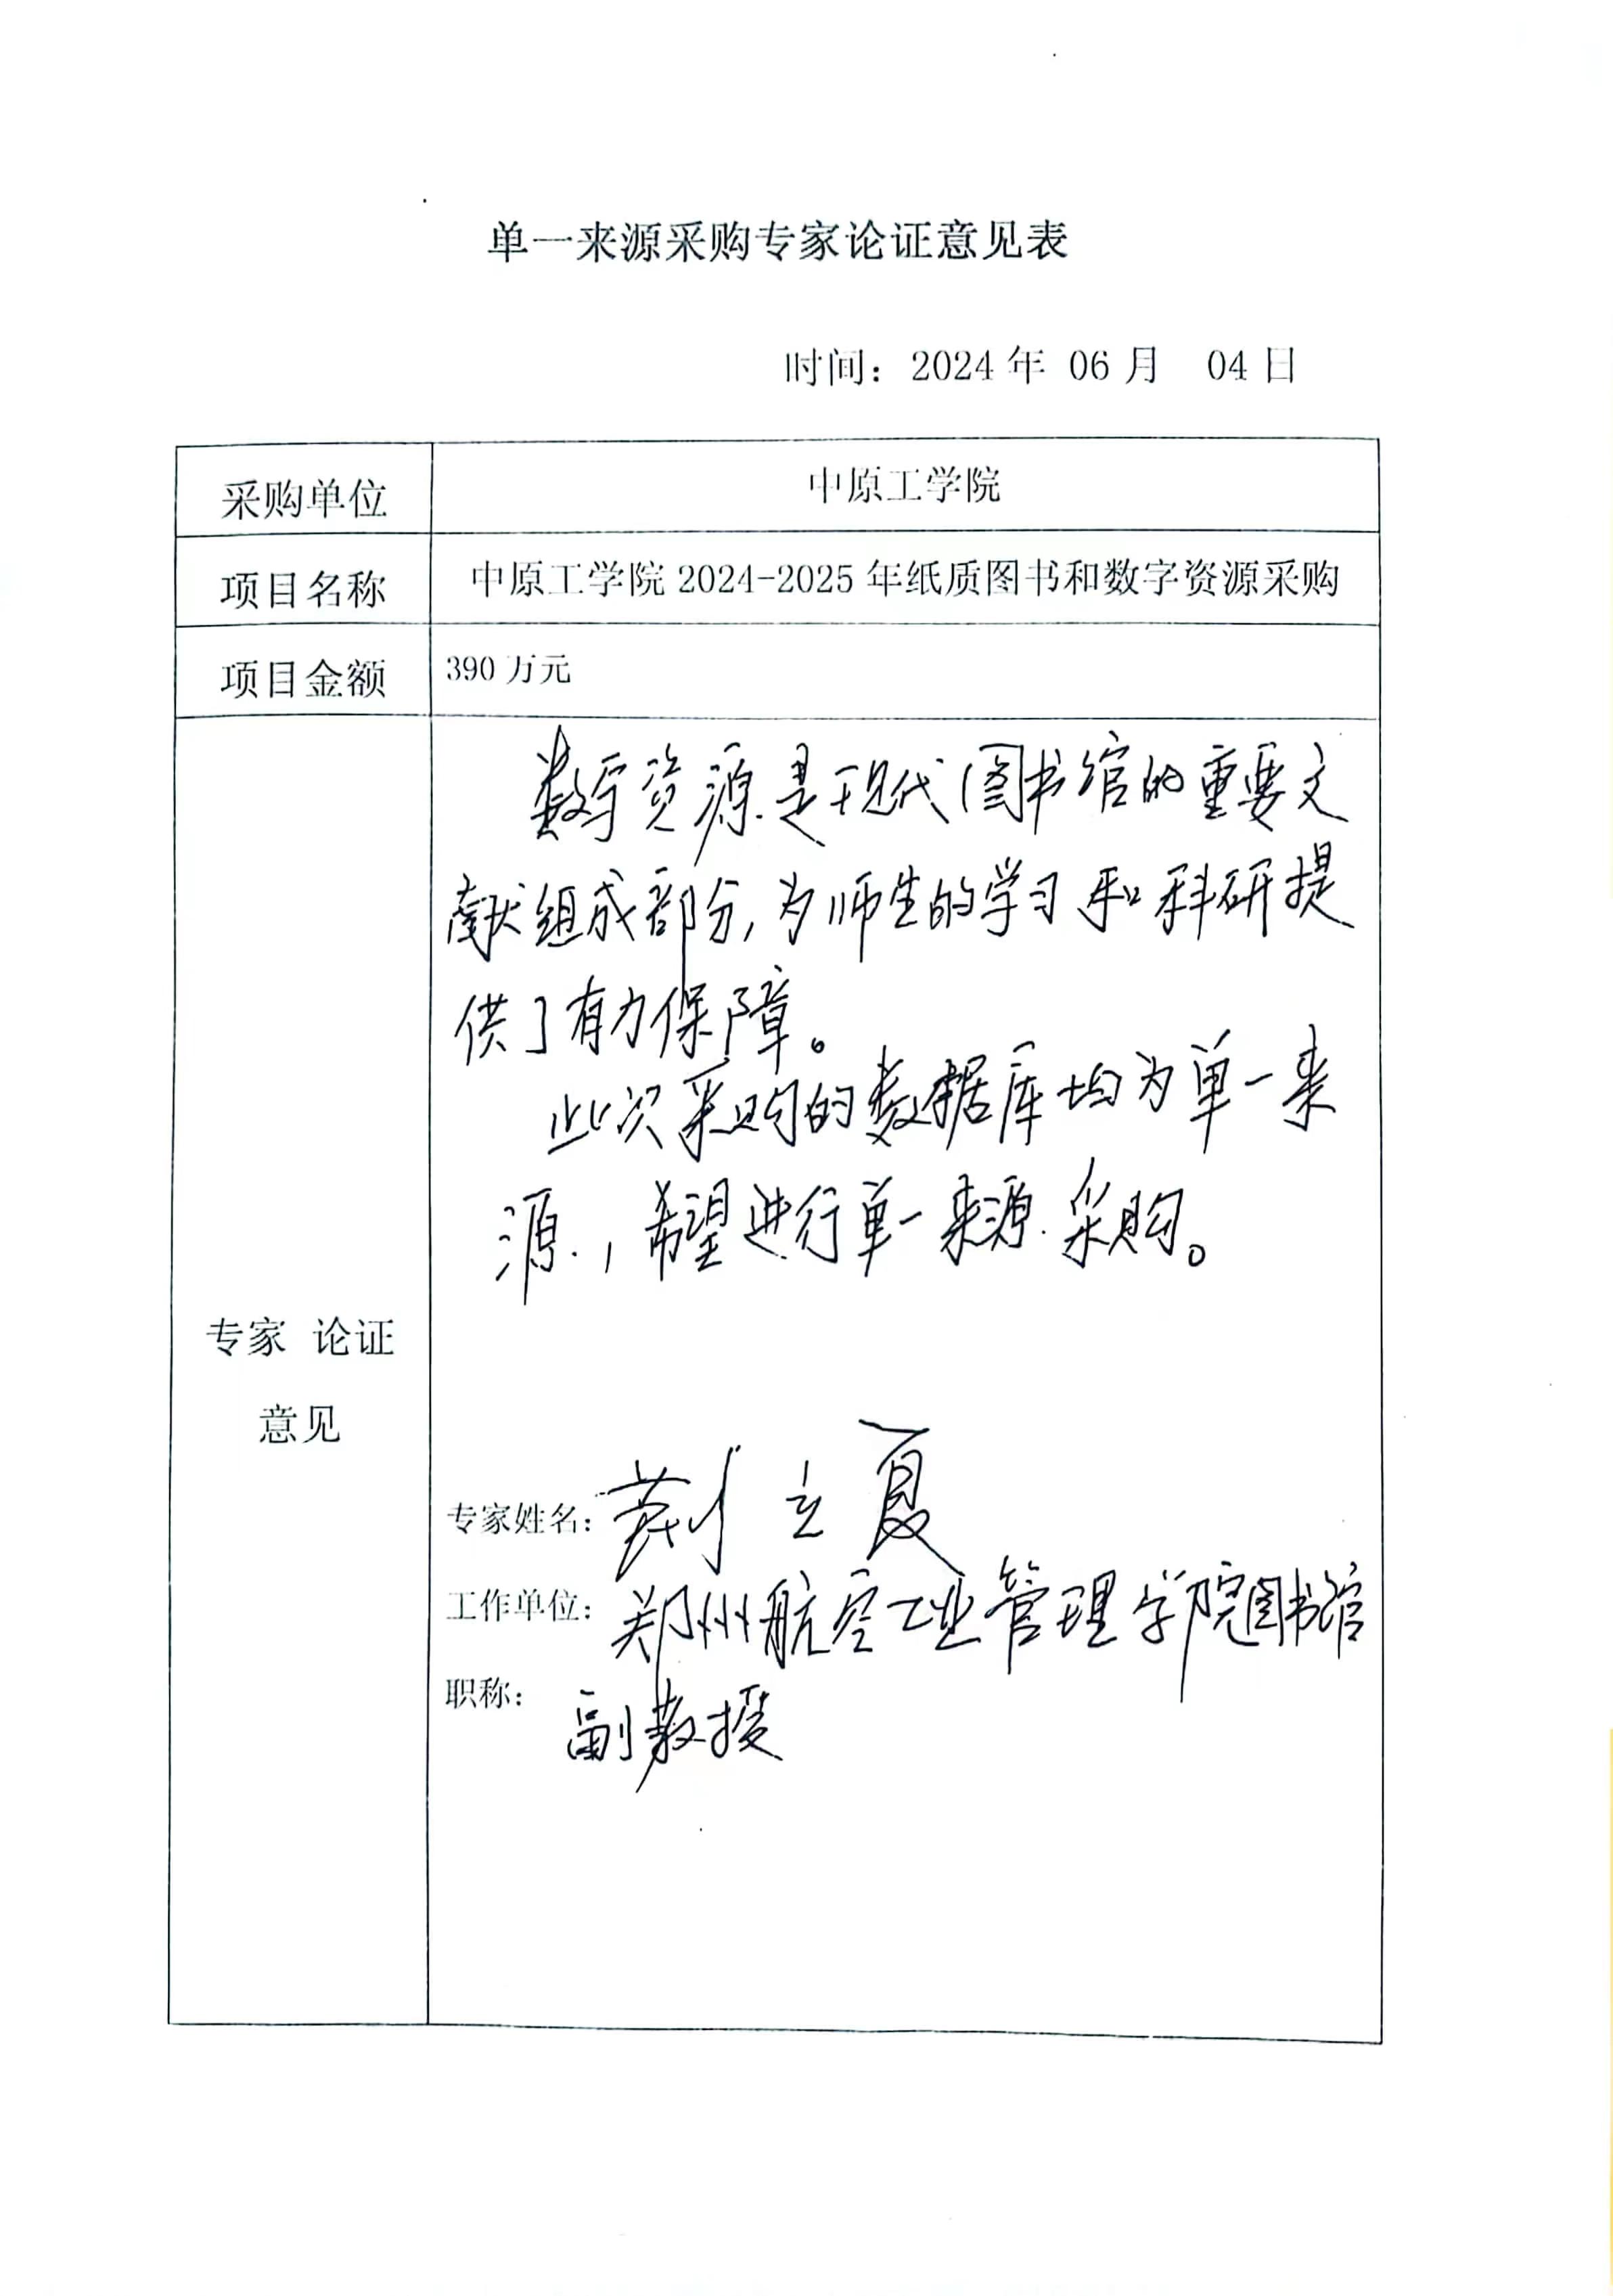 单一来源采购专家论证意见表
时间：2024年 06月 04日
采购单位
中原工学院
项目名称
中原工学院 2024-2025 年纸质图书和数字资源采购
项目金额
390 万元
专家 论证
意见
数字资源是现代图书馆的重要文
献组成部分，为师生的学习和科研提
供了有力保障。
此次采购的数据库均为单一来
源，希望进行单一来源采购。
专家姓名：荆立夏
工作单位：郑州航空工业管理学院图书馆
职称：副教授